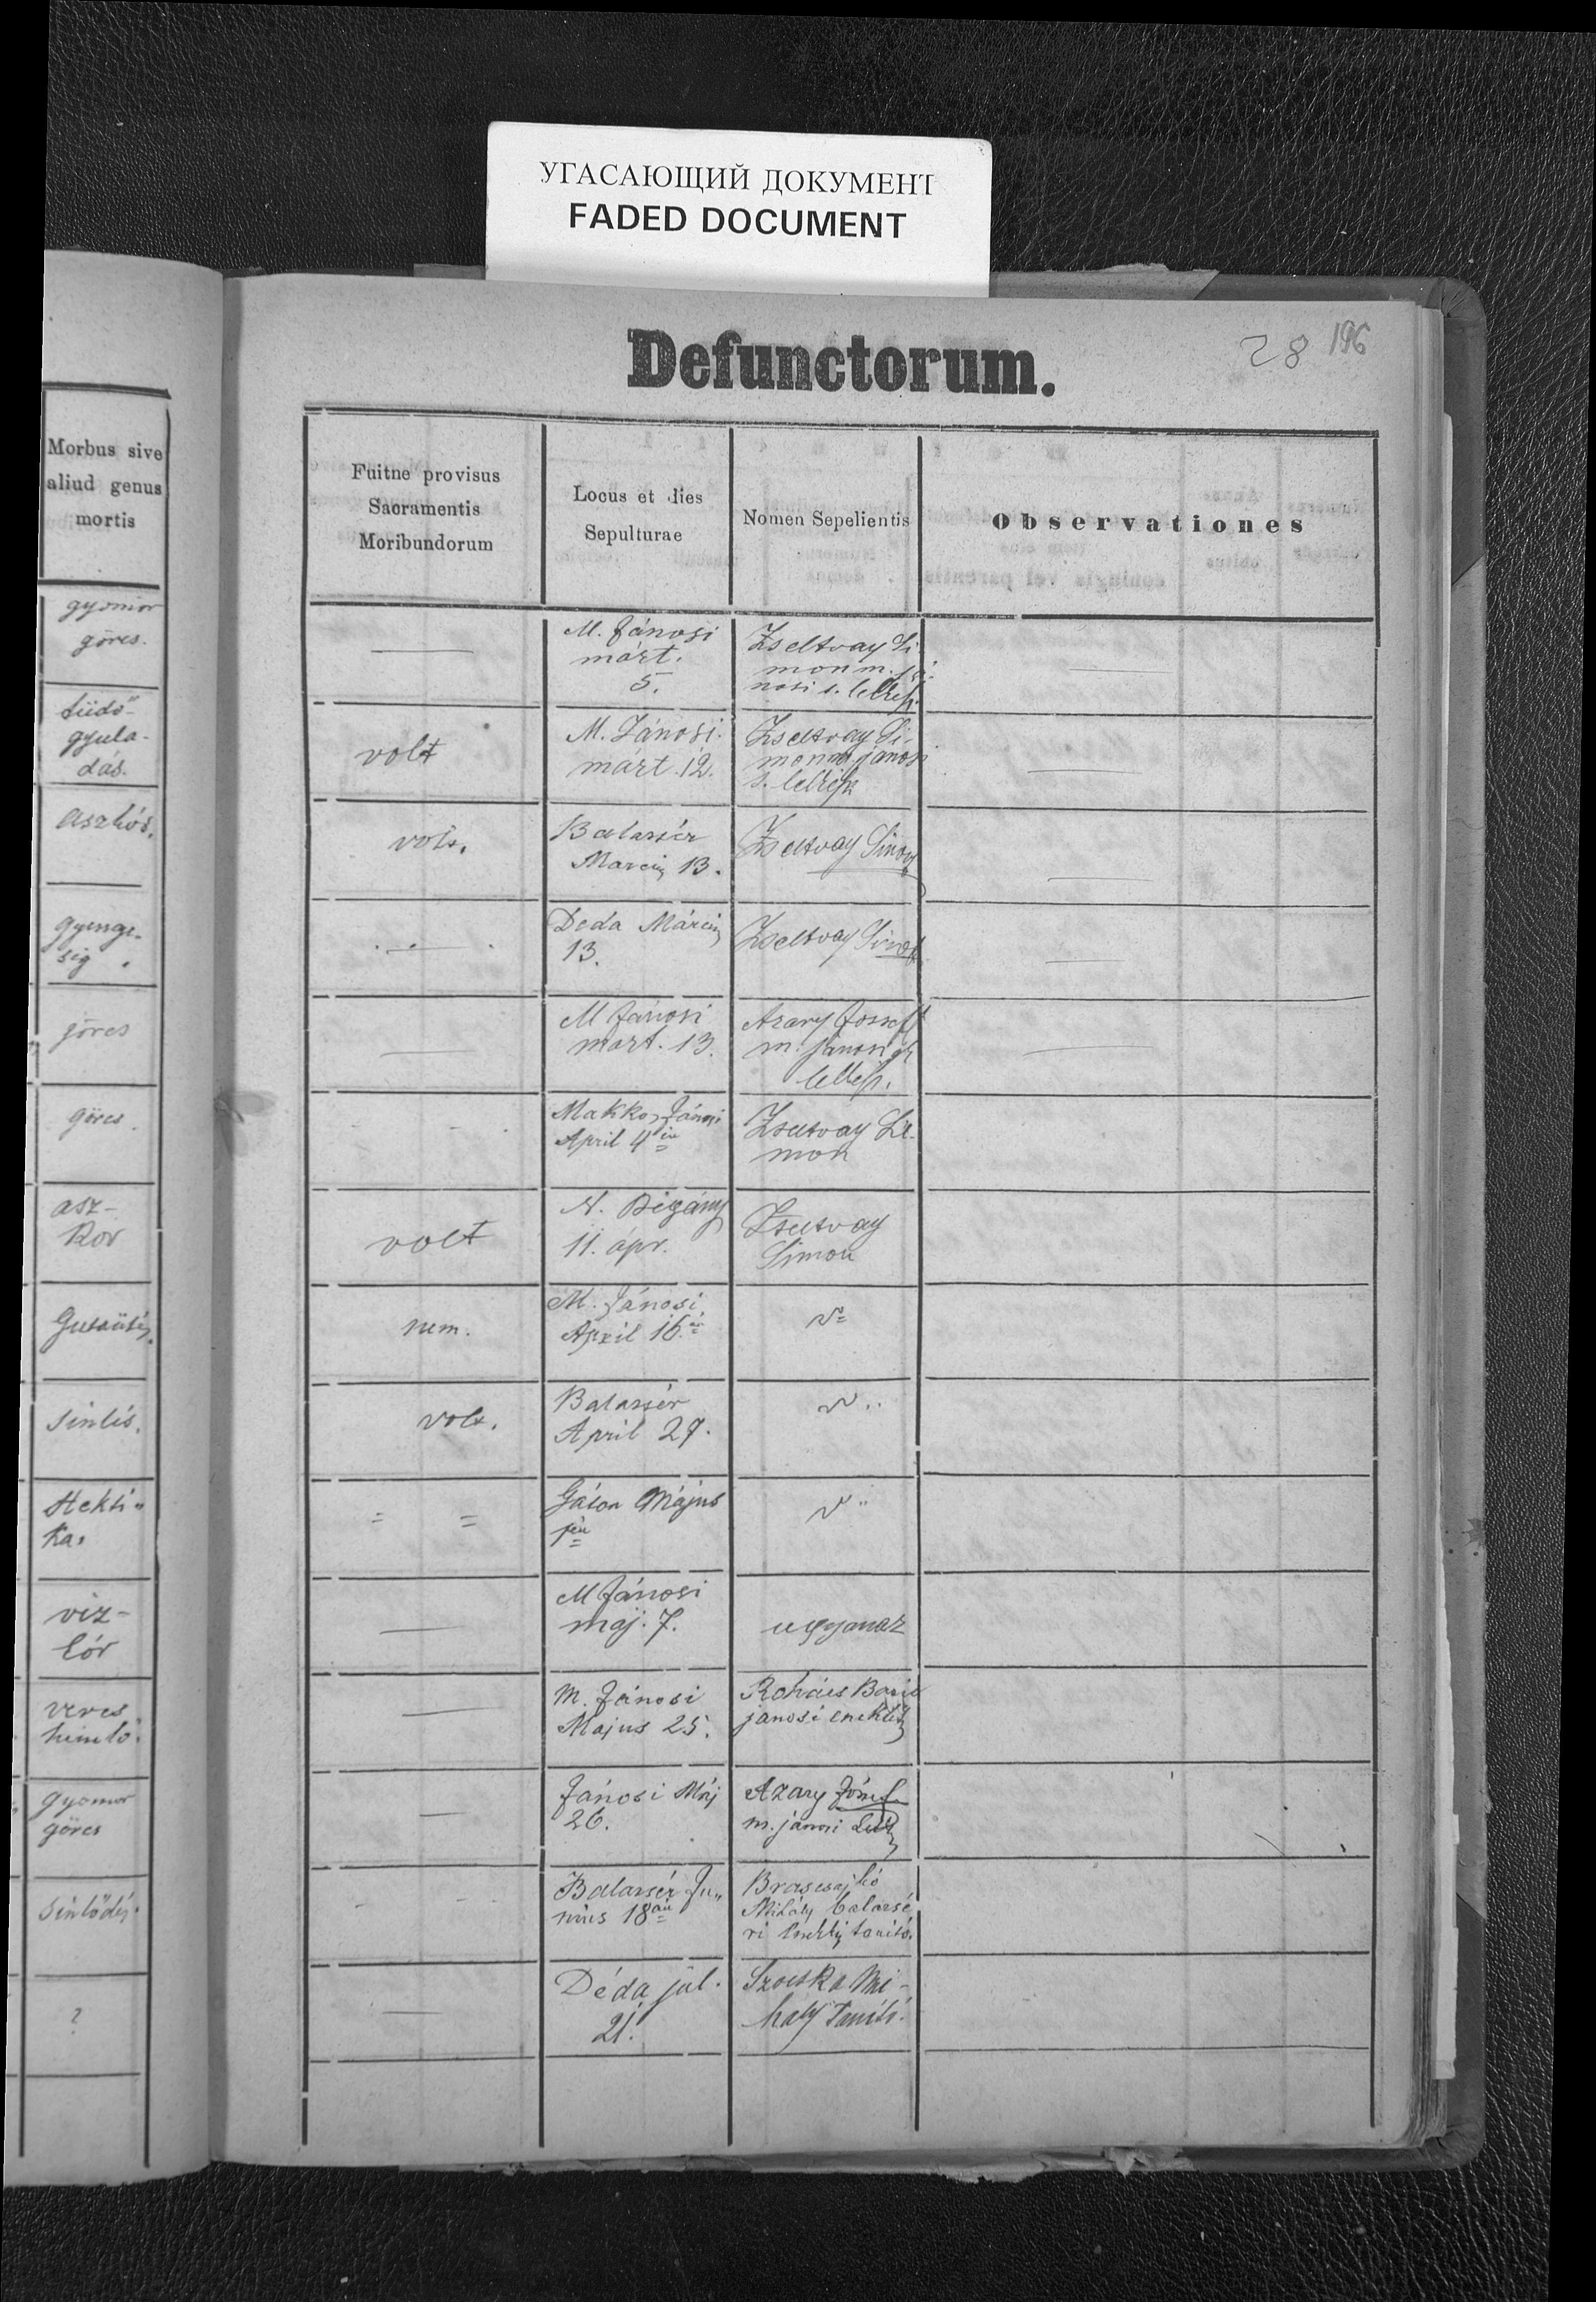 УГАСАЮЩИЙ ДОКУМЕНТ
FADED DOCUMENT
Defunctorum.
28 196
Morbus sive
aliud genus
mortis
Fuitne provisus
Sacramentis
Moribundorum
Locus et dies
Sepulturae
Nomen Sepelientis
Observationes
gyomor
görcs.
M. Jánosi
márt.
5.
Zseltvay Si
mon m. já-
nosi s. lelkész
tüdő-
gyula-
dás.
volt
M. Jánosi
márt. 12.
Zseltvay Si-
mon m. jánosi
s. lelkész
aszkór.
volt.
Balazsér
Marcius 13.
Zseltvay Simon
gyenge-
ség.
Deda Március
13.
Zseltvay Simon
görcs
M Jánosi
márt. 13.
Azary József
m. jánosi gk
lelkész.
görcs.
Makkos Jánosi
April 4én
Zseltvay Si-
mon
asz-
kór
volt
N. Bégány
11. ápr.
Zseltvay
Simon
nem.
M. Jánosi
April 16án
Sinlés.
volt.
Balazsér
April 29.
Hekti-
ka.
Gáton Május
viz-
kór
M Jánosi
máj. 7.
ugyanaz
veres
himlő.
M. Jánosi
Majus 25.
Rohács
jánosi
gyomor
görcs
Jánosi Máj
26.
Azary József
m. jánosi
Sinlődés.
Balazsér Ju-
nius 18án
Mihály balazsé
ri tanitó.
?
Déda jul.
21.
Szocska Mi-
hály Tanitó.